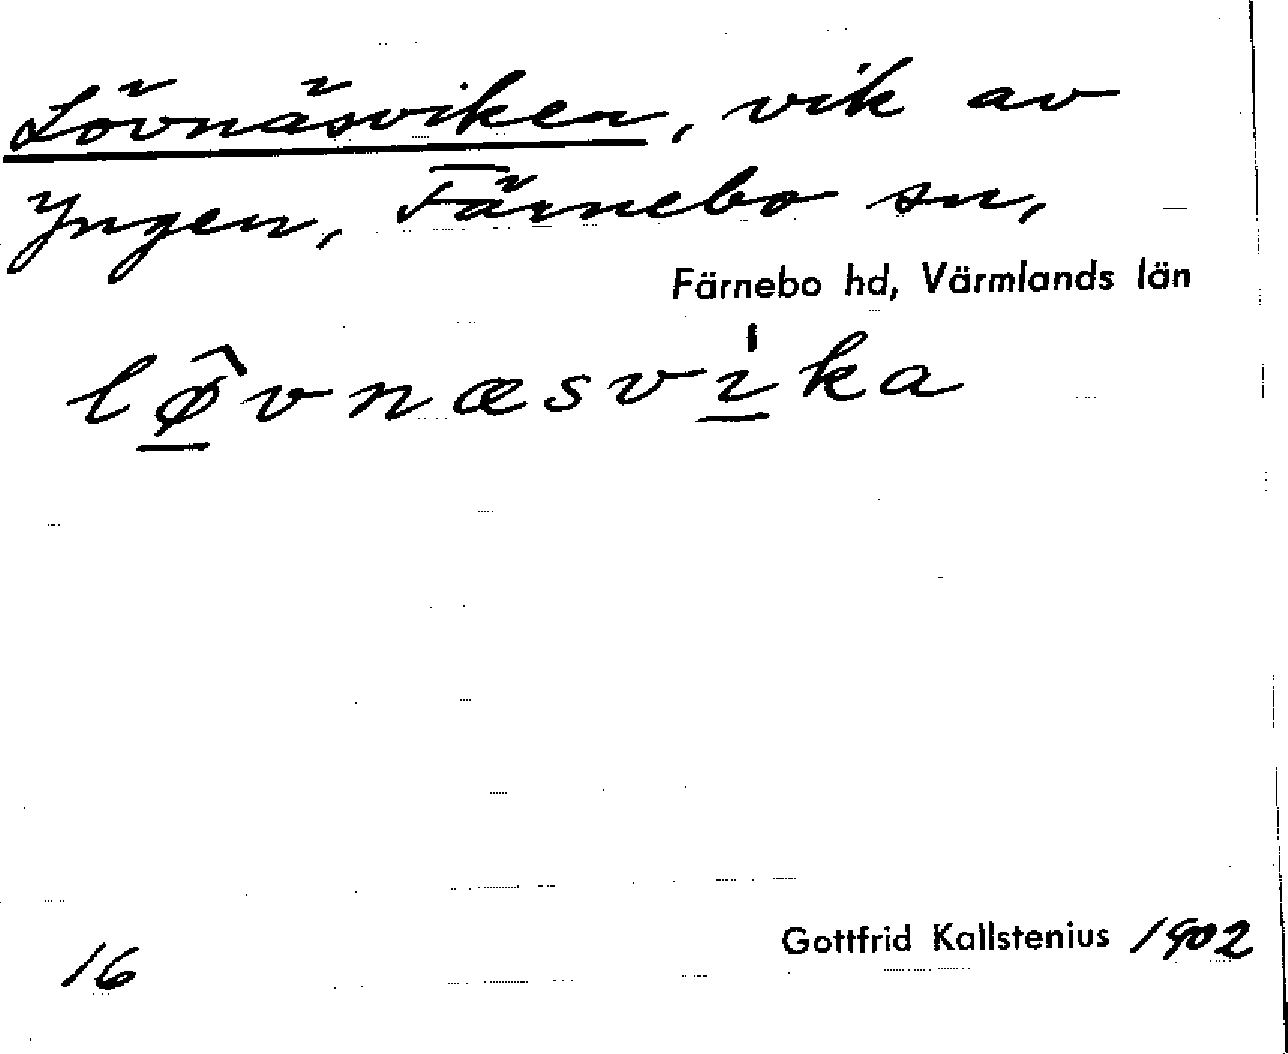 Lövnäsviken, vik av
Yngen, Färnebo sn,
Färnebo hd, Värmlands län
lø̂vnæsvi̍ka
16
Gottfrid Kallstenius 1902